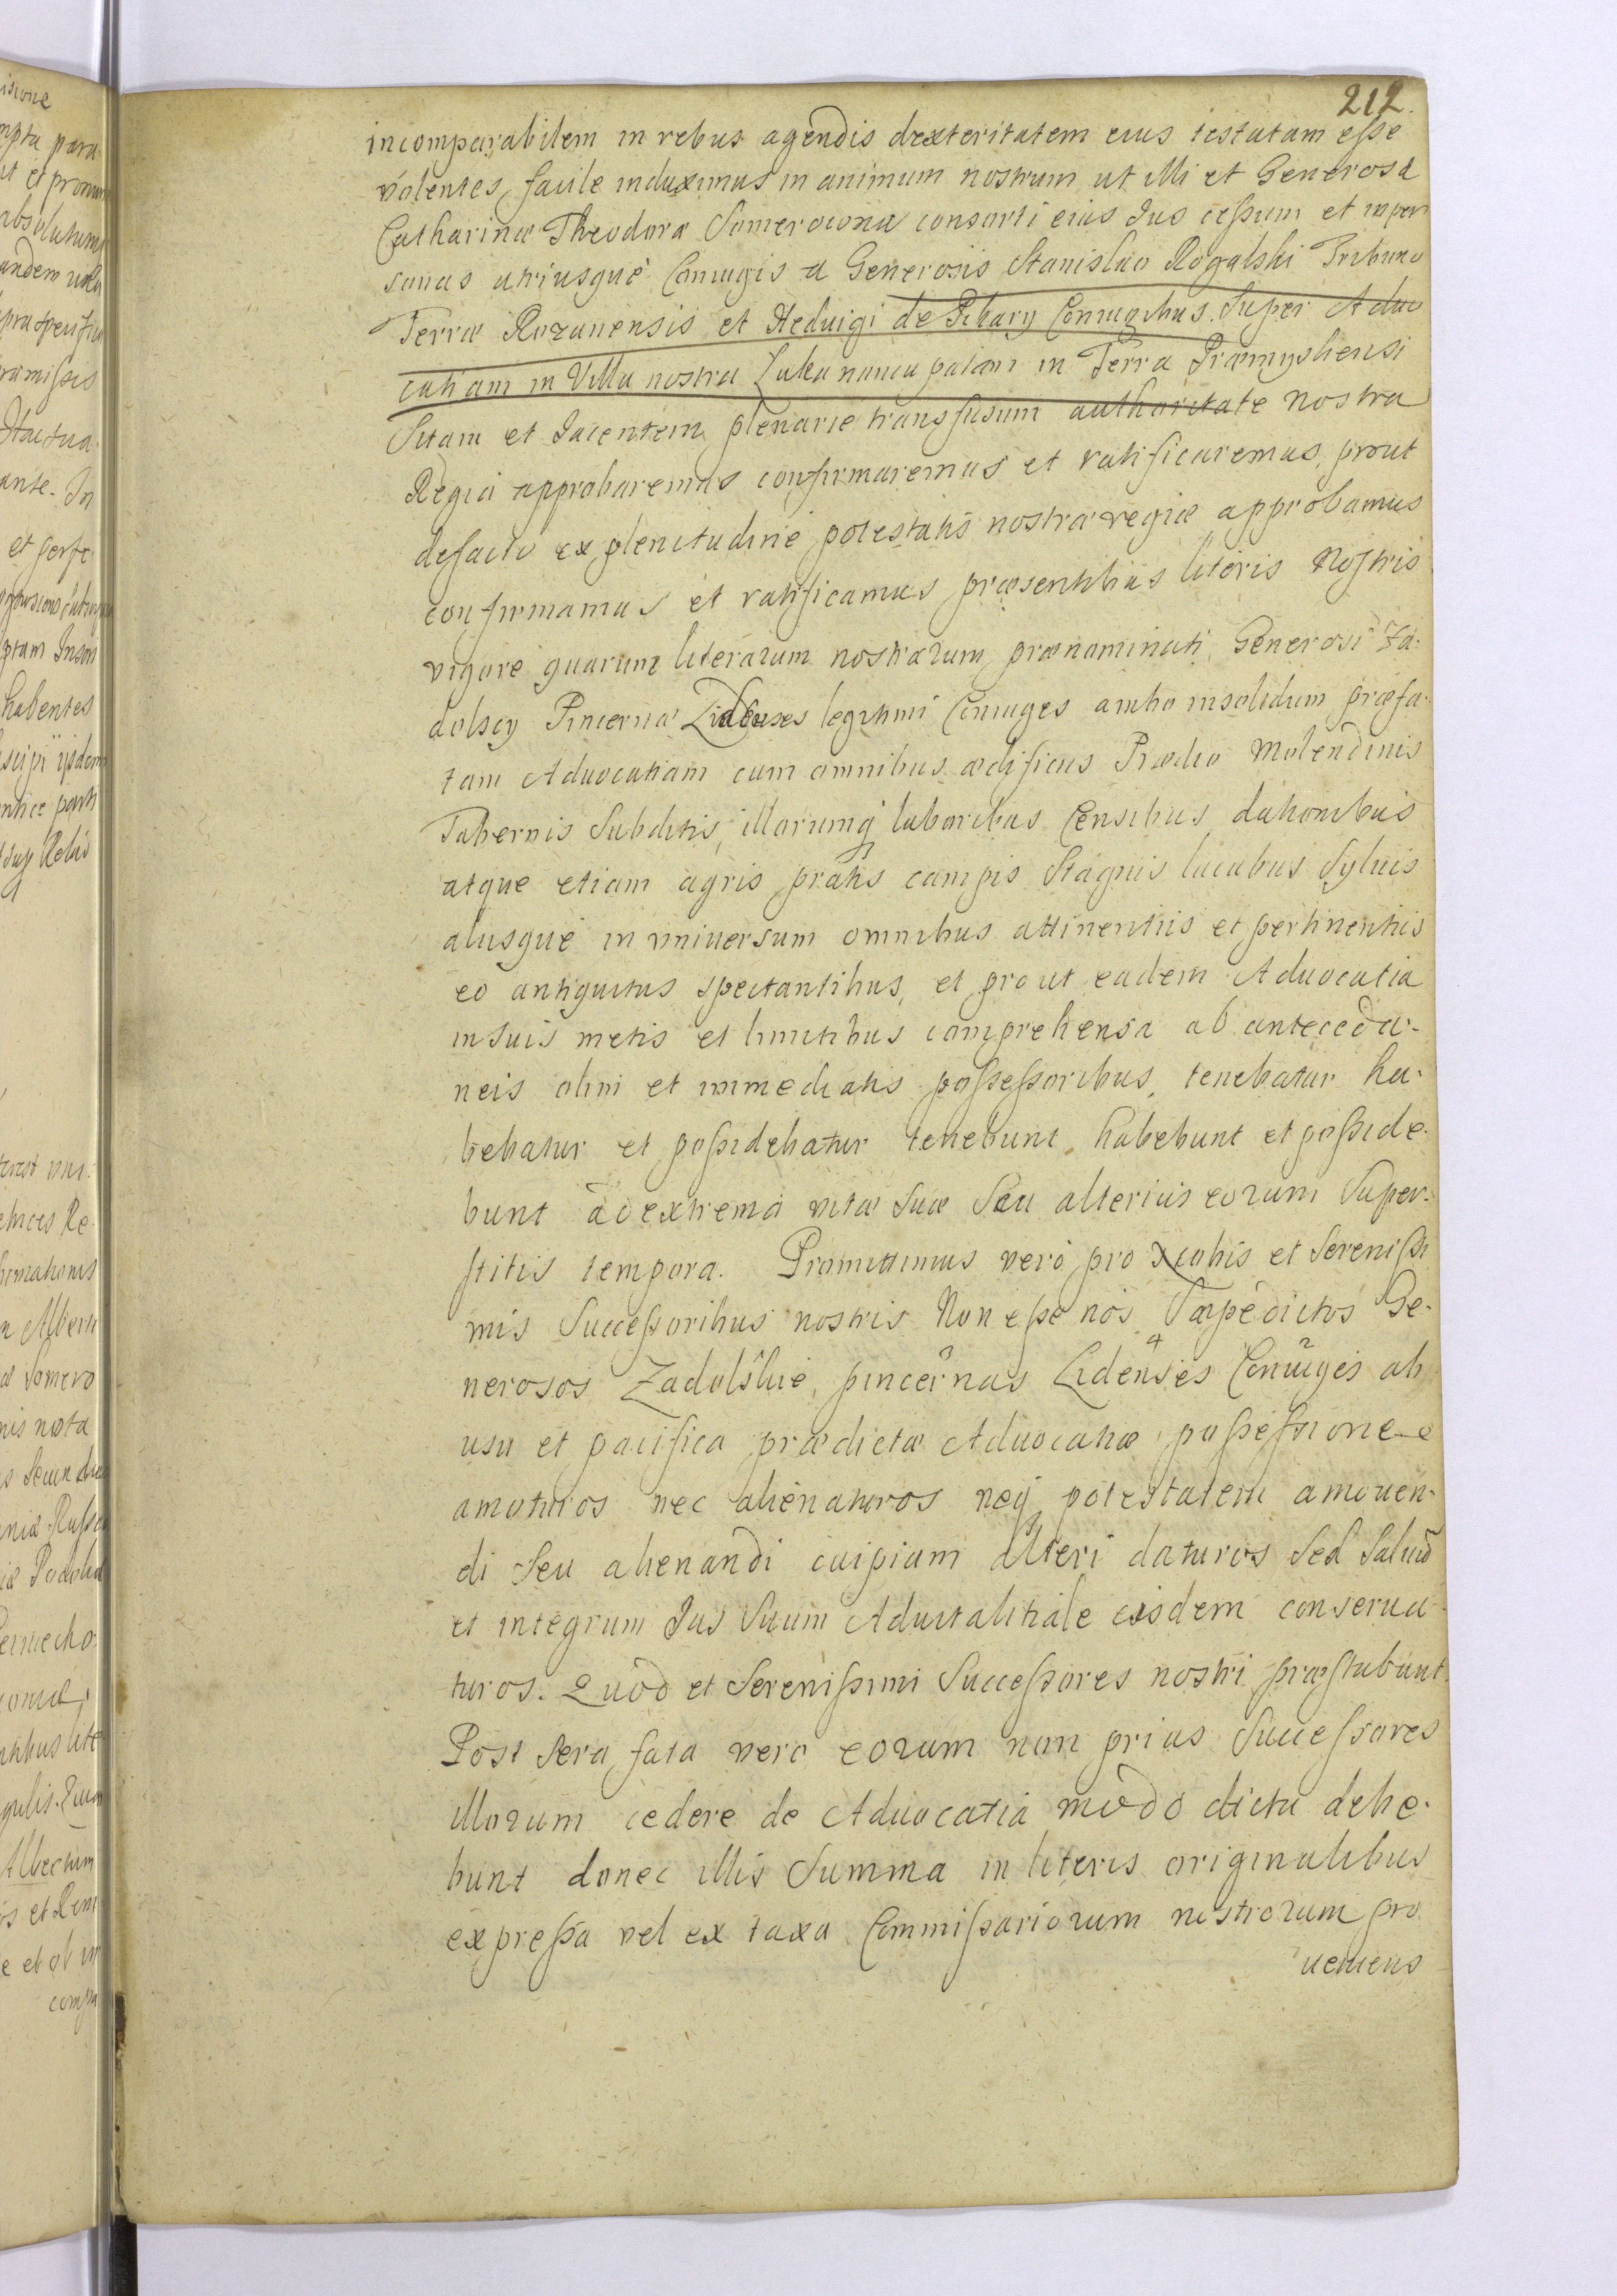 212.
incomparabilem in rebus agendis dexteritatem eius testatam esse
volentes, facile induximus in animum nostrum ut illi et Generosa
Catharinæ Theodoræ Someroconæ consorti eius Jus cessum et in per
sonas utriusque Coniugis a Generosis Stanislao Rogalski Tribuno
Terræ Rozanensis et Heduigi de Pilary Coniugibus Super Aduo
catiam in Villa nostra Luka nuncupatam in Terra Præmysliensi
Sitam et Jacentem plenarie transfusum authoritate nostra
Regia approbaremus confirmaremus et ratificaremus, prout
de facto ex plenitudine potestatis nostræ regiæ approbamus
confirmamus et ratificamus præsentibus literis Nostris
vigore quarum literarum nostrarum prænominati Generosi Za-
dolscy Pincernæ Lidenses legitimi Coniuges ambo insolidum præfa-
tam Aduocatiam cum omnibus ædificiis Prædio Molendinis
Tabernis Subditis, illorumq laboribus Censibus dationibus
atque etiam agris pratis campis Stagnis lacubus Syluis
aliisque in vniuersum omnibus attinentiis et pertinentiis
eo antiquitus spectantibus, et prout eadem Aduocatia
in suis metis et limitibus comprehensa ab anteceda-
neis olim et immediatis possessoribus, tenebatur ha-
bebatur et possidebatur tenebunt, habebunt et posside-
bunt ad extrema vitæ suæ Seu alterius eorum Super-
stitis tempora. Promittimus vero pro nobis et Serenissi
mis Successoribus nostris Non esse nos Sæpedictos Ge-
nerosos Zadolskie, pincernas Lidenses Coniuges ab
usu et pacifica prædictæ Aduocatiæ possessione
amoturos nec alienaturos neq potestatem amouen-
di Seu alienandi cuipiam alteri daturos Sed Saluũ
et integrum Jus Suum Aduitalitiale eisdem conserua-
turos. Quod et Serenissimi Successores nostri præstabunt.
Post Sera fata vero eorum non prius Successores
illorum cedere de Aduocatia modo dicta debe-
bunt donec illis Summa in literis originalibus
expressa vel ex taxa Commissariorum nostrorum pro
ueniens